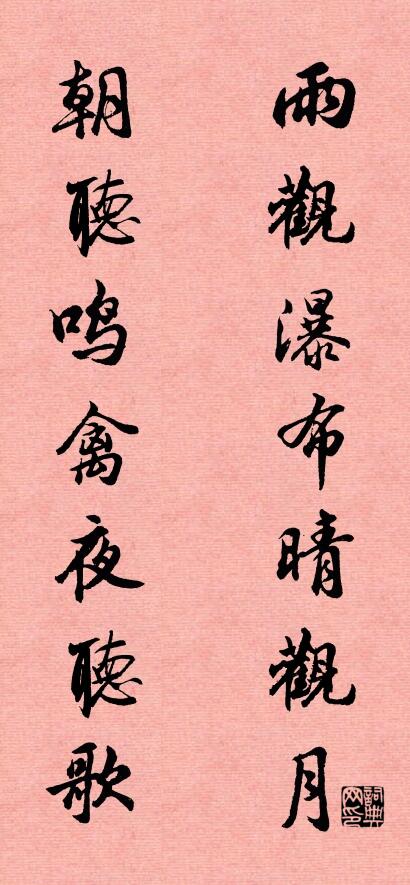 雨觀瀑布晴觀月
朝聽鳴禽夜聽歌
詞典
网印